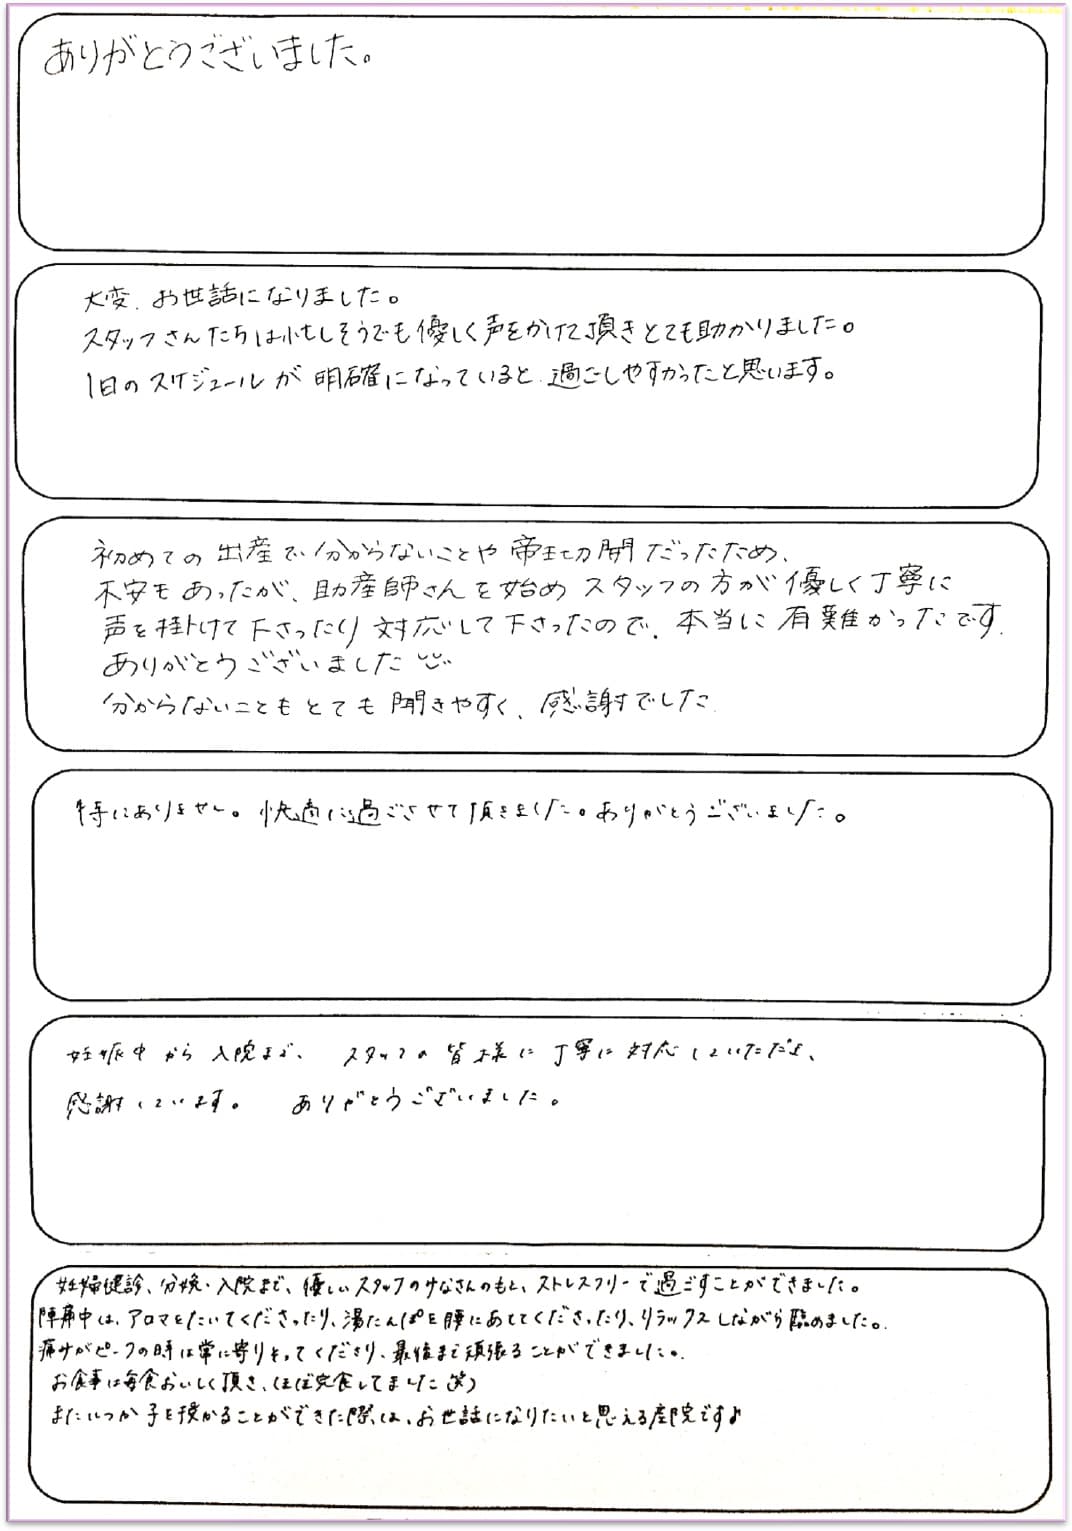 ありがとうございました。
大変、お世話になりました。
スタッフさんたちは忙しそうでも優しく声をかけて頂きとても助かりました。
1日のスケジュールが明確になっていると、過ごしやすかったと思います。
初めての出産で、分からないことや帝王切開だったため、
不安もあったが、助産師さんを始めスタッフの方が優しく丁寧に
声を掛けて下さったり対応して下さったので、本当に有難かったです。
ありがとうございました
分からないこともとても聞きやすく、感謝でした
特にありません。快適に過ごさせて頂きました。ありがとうございました。
妊娠中から入院まで、スタッフの皆様に丁寧に対応していただき、
感謝しています。 ありがとうございました。
妊婦健診、分娩・入院まで、優しいスタッフのみなさんのもと、ストレスフリーで過ごすことができました。
陣痛中は、アロマをたいてくださったり、湯たんぽを腰にあててくださったり、リラックスしながら臨めました。
痛みがピークの時は常に寄りそってくださり、最後まで頑張ることができました。
お食事は毎食おいしく頂き、ほぼ完食してました(笑)
またいつか子を授かることができた際は、お世話になりたいと思える産院です♪